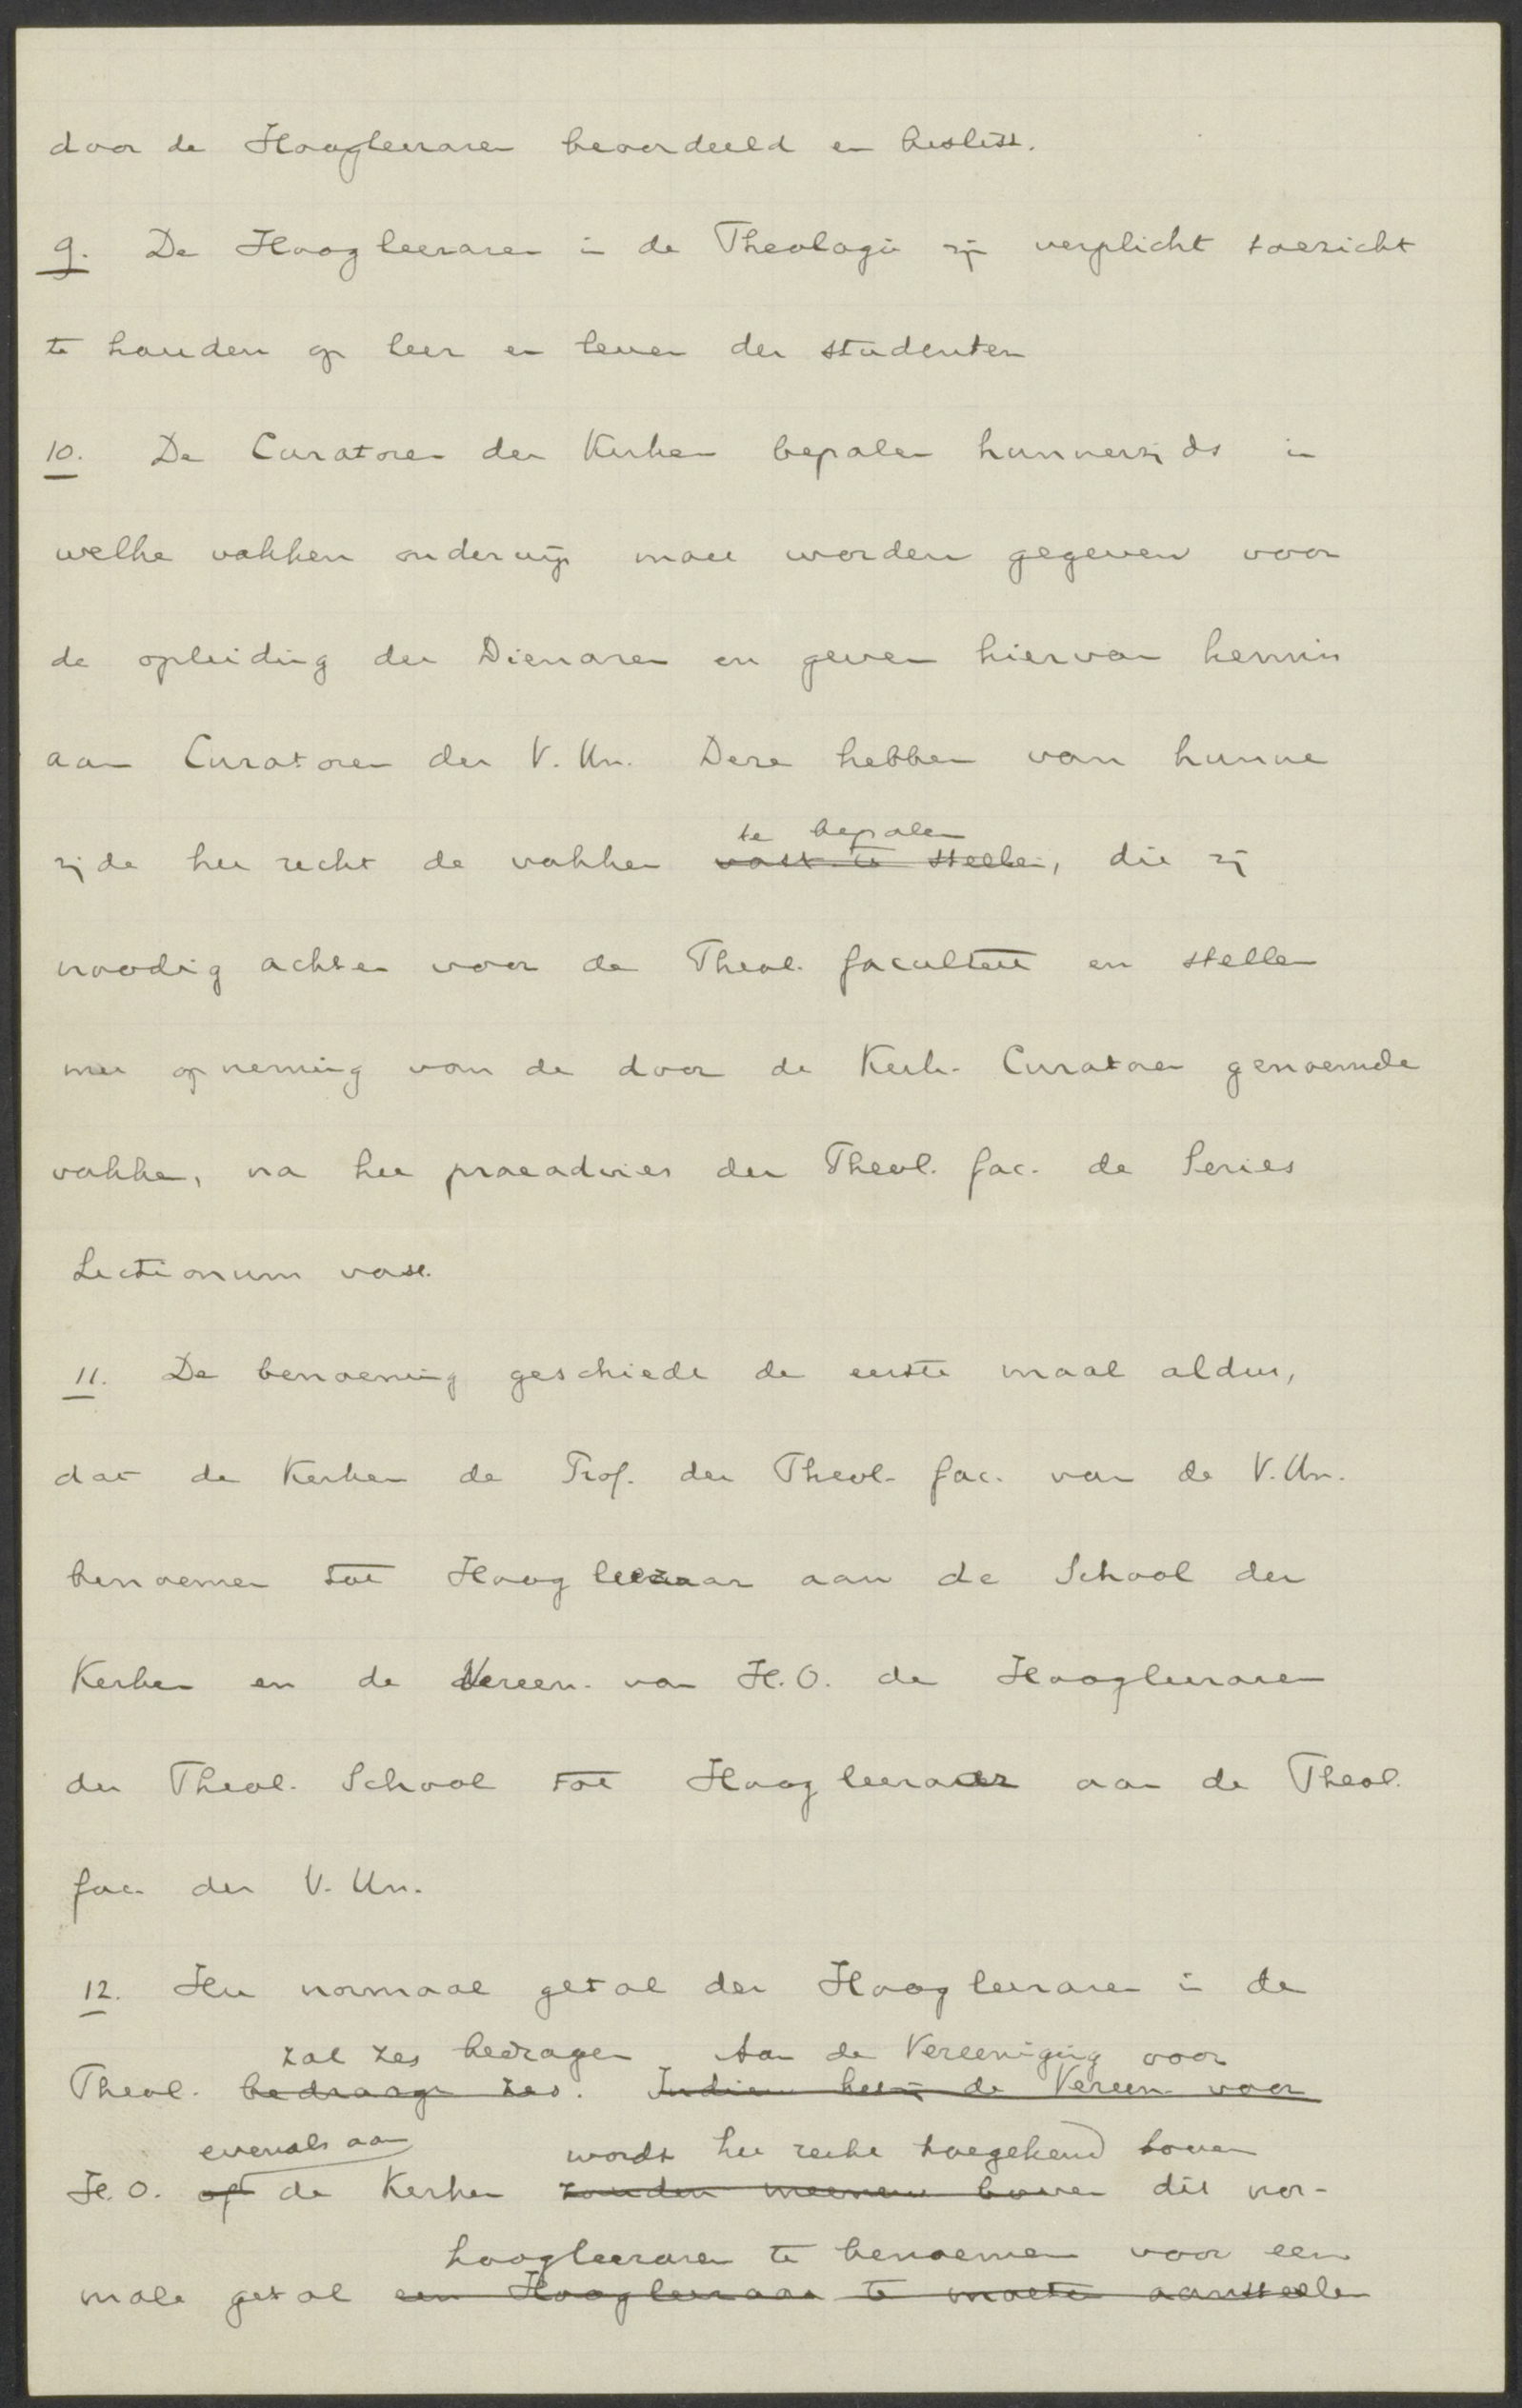 door de Hoogleeraren beoordeeld en beslist.
9. De Hoogleeraren in de Theologie zijn verplicht toezicht
te houden op leer en leven der studenten
10. De Curatoren der Kerken bepalen hunnerzijds in
welke vakken onderwijs moet worden gegeven voor
de opleiding der Dienaren en geven hiervan kennis
aan Curatoren der V. Un. Deze hebben van hunne
te bepalen
zijde het recht de vakken vast te stellen, die zij
noodig achten voor de Theol. faculteit en stellen
met opneming van de door de Kerk. Curatoren genoemde
vakken, na het praeadvies der Theol. fac. de Series
Lectionum vast.
11. De benoeming geschiede de eerste maal aldus,
dat de Kerken de Prof. der Theol. fac. van de V. Un.
benoemen tot Hoogleeraar aan de School der
Kerken en de Vereen. van H.O. de Hoogleeraren
der Theol. School tot Hoogleeraar aan de Theol.
fac. der V. Un.
12. Het normaal getal der Hoogleeraren in de
zal zes bedragen Aan de Vereeniging voor
Theol. bedraage zes. Indien de Vereen. voor
evenals aan wordt het recht toegekend boven
H.O. of de Kerken zouden meenen boven dit nor-
hoogleeraren te benoemen voor een
male getal een Hoogleeraar te moeten aanstellen